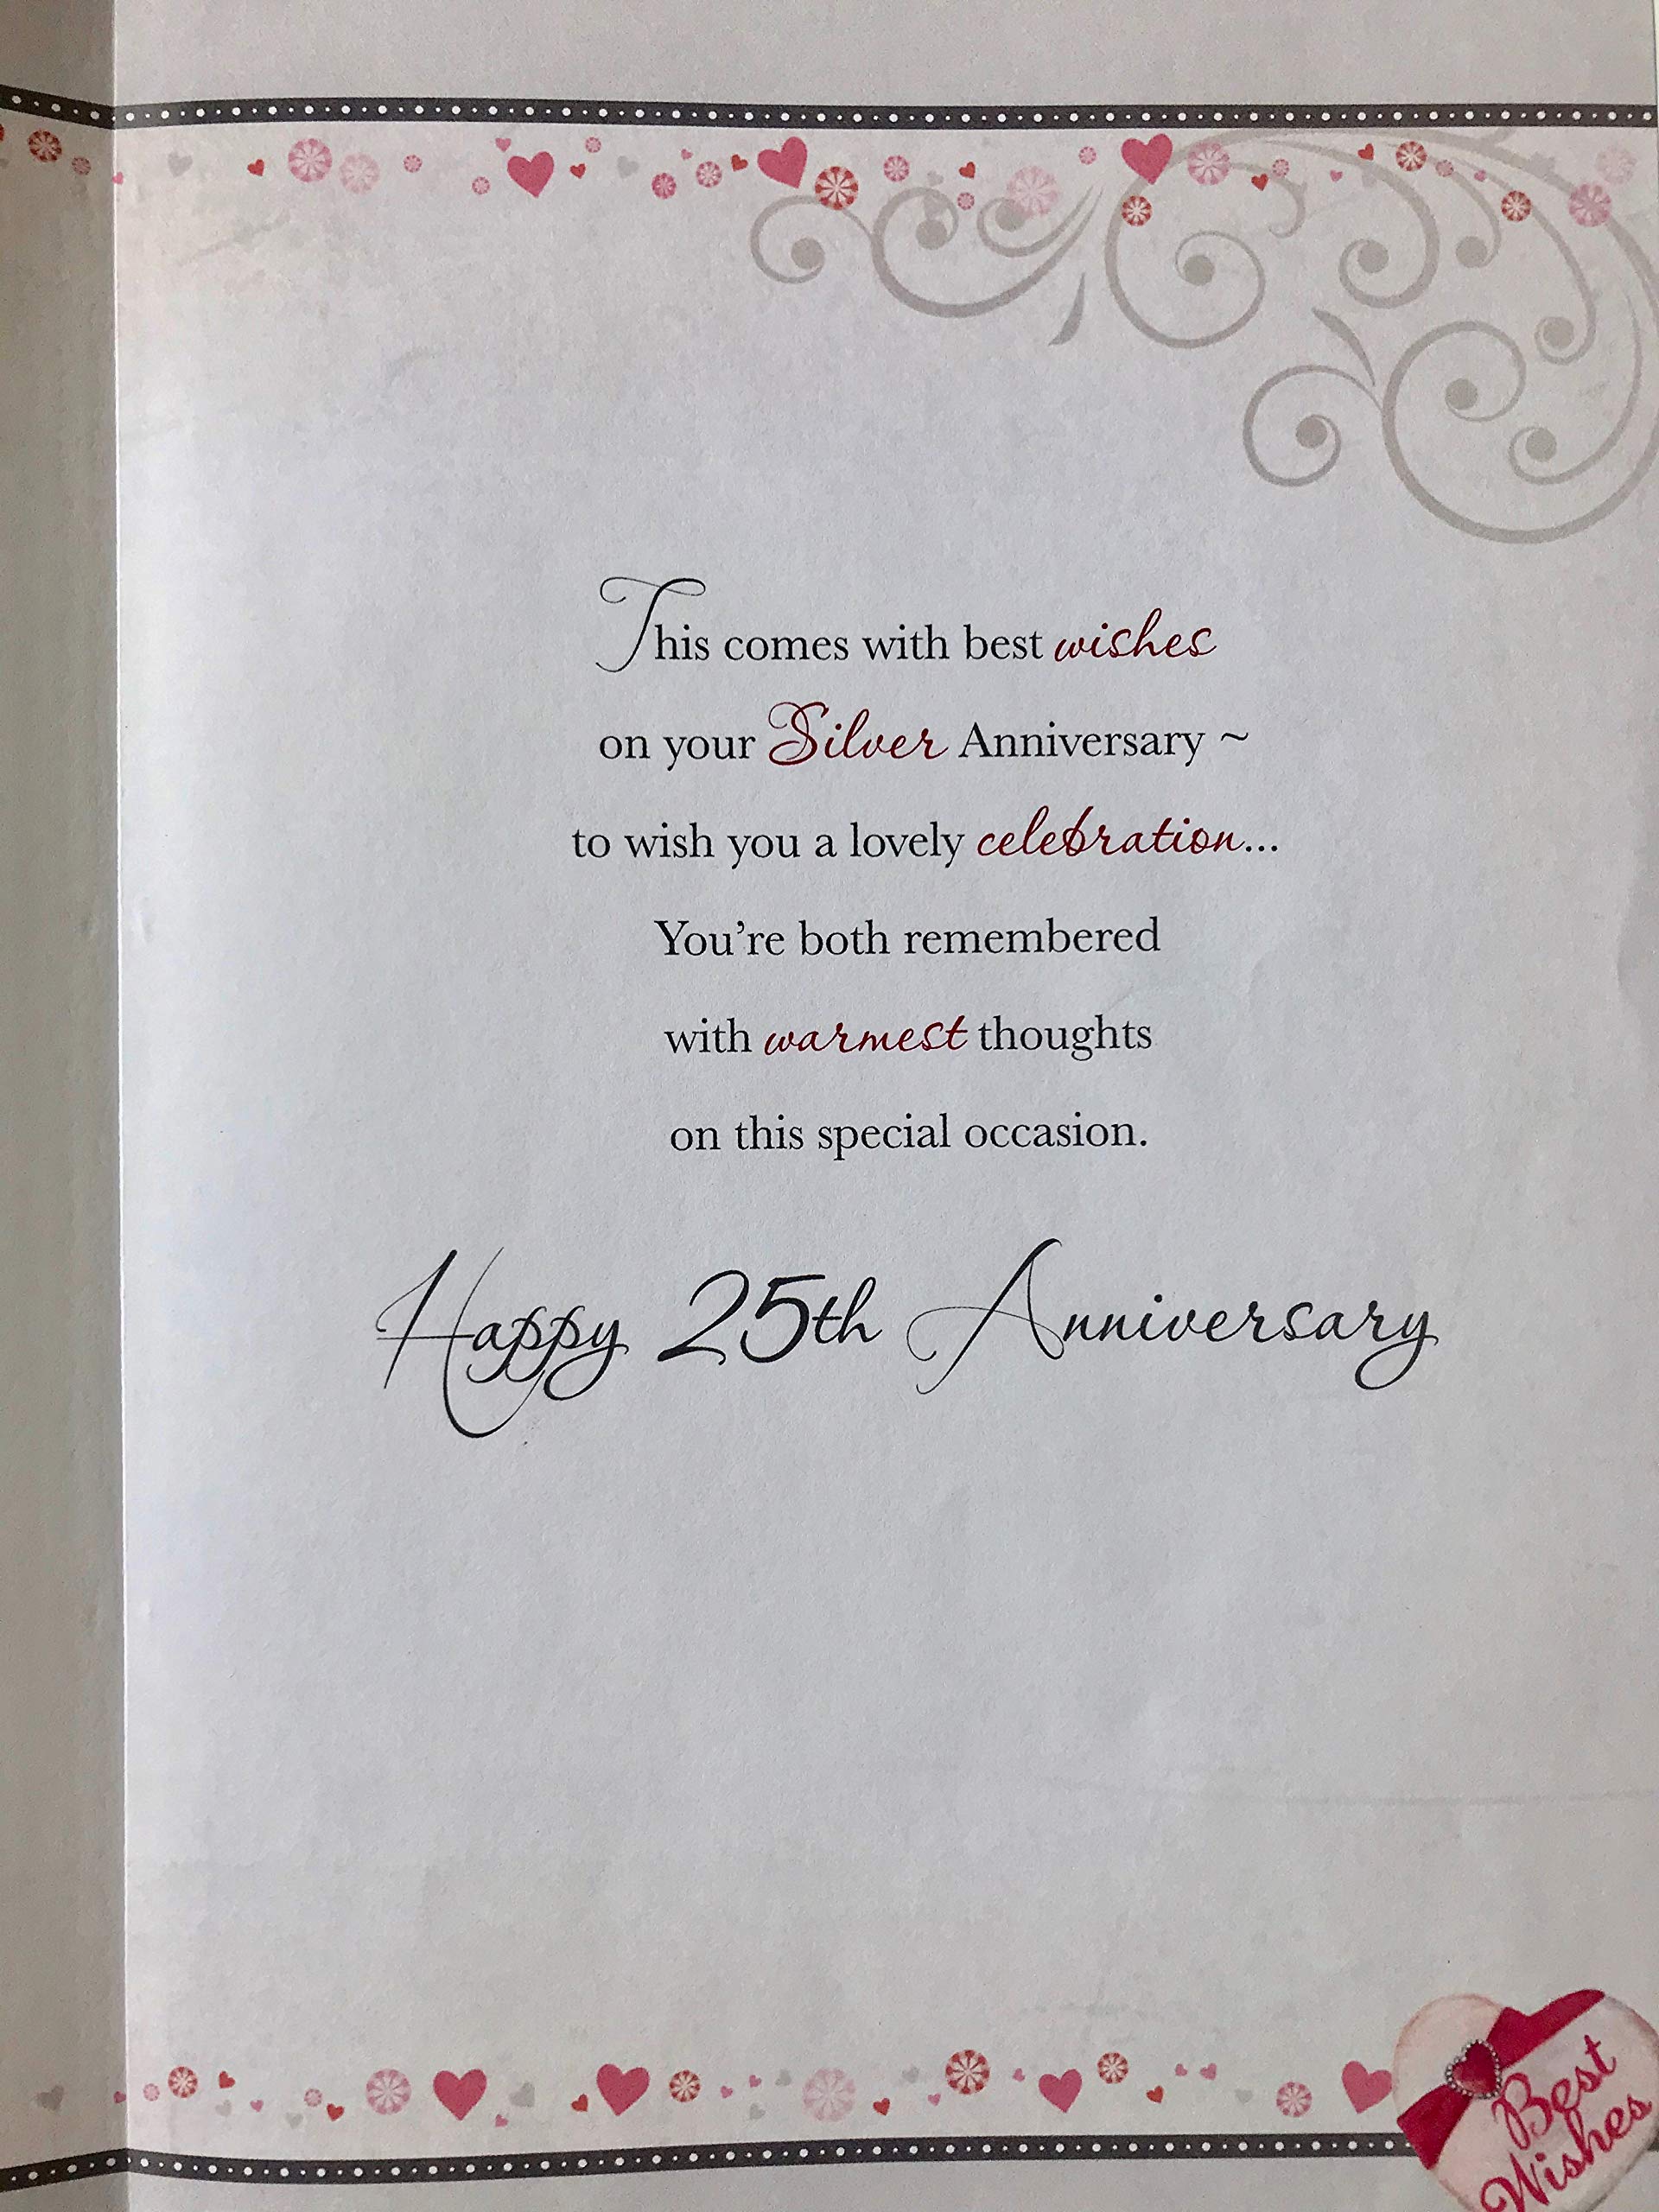 This comes with best wishes
on your Silver Anniversary ~
to wish you a lovely celebration...
You're both remembered
with warmest thoughts
on this special occasion.
Happy 25th Anniversary
Best
Wishes